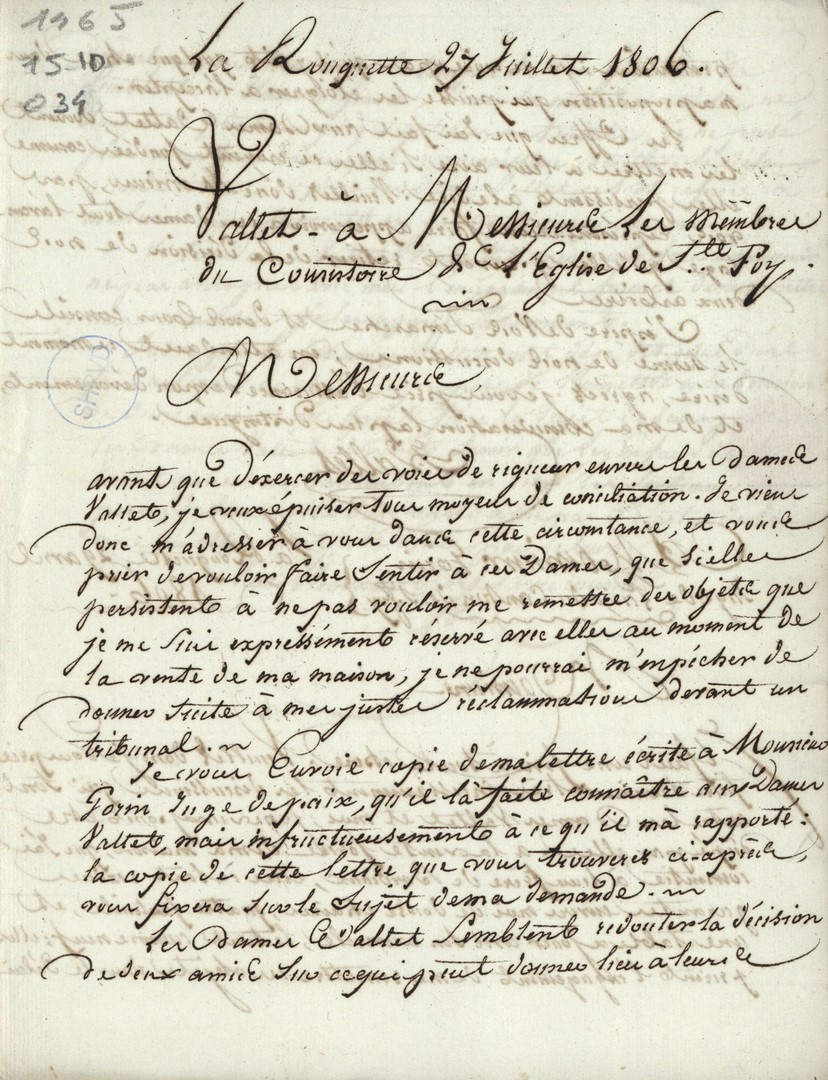 1965
1510
034
La Rouquette 27 Juillet 1806.
Vallet - à Messieurs Les membres
du Consistoire de l'Eglise de Ste. Foy
Messieurs
avant que d'éxercer des voies de rigueur envers les Dames
Vallet, je veux épuiser tous moyens de conciliation. Je viens
donc m'adresser à vous dans cette circonstance, et vous
prier de vouloir faire Sentir à ces Dames, que si elles
persistent à ne pas vouloir me remettre des objets que
je me suis expressément réservé avec elles au moment de
la vente de ma maison, je ne pourrai m'empécher de
donner suite à mes justes réclammations devant un
tribunal.
Je vous Envoie copie de ma lettre écrite à Monsieur
Juge de paix, qu'il là faite connaître aux Dames
Vallet, mais infructueusement à ce qu'il m'à rapporté:
la copie de cette lettre que vous trouveres ci-après,
vous fixera sur le Sujet de ma demande.
Les Dames Vallet Semblent redouter la décision
de deux amis sur ce qui peut donner lieu à leurs